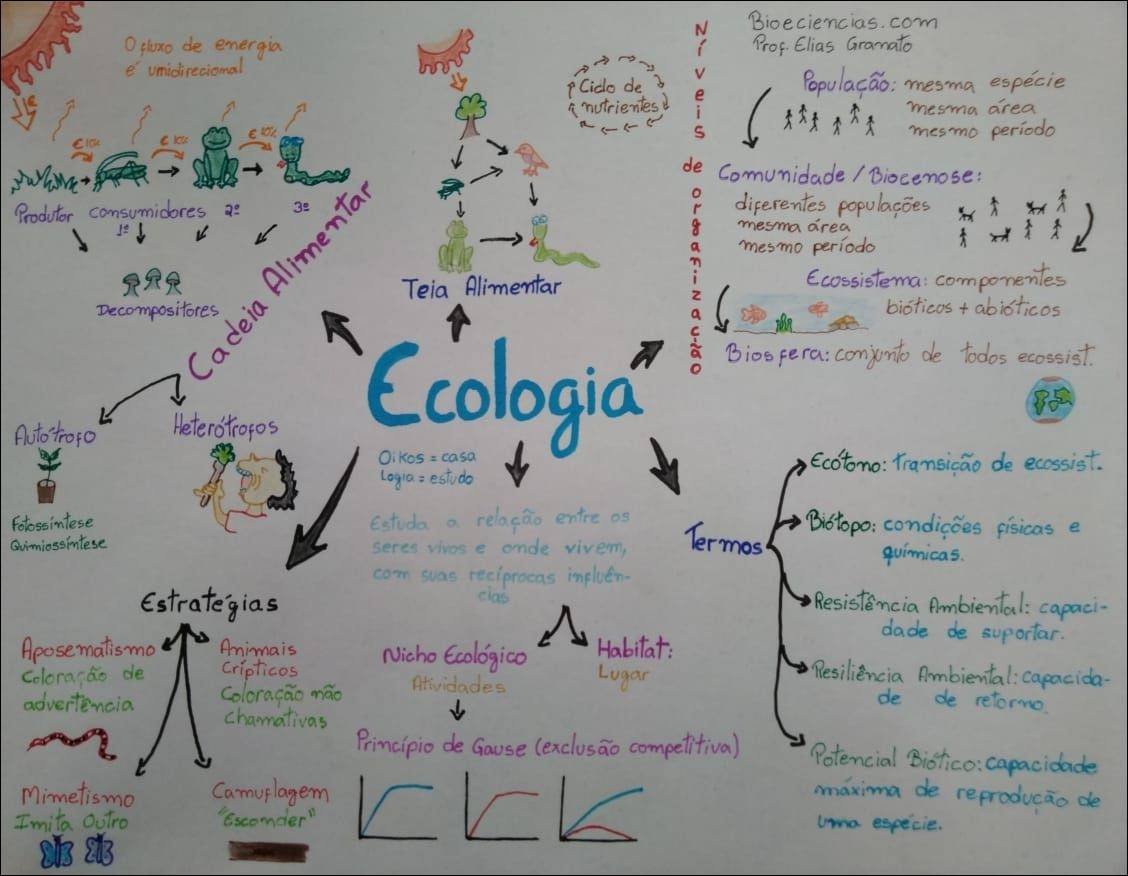 O fluxo de energia
é umidirecional
€
€ 10%
€ 10%
€ 10%
Produtor consumidores 2º 3º
1º
Decompositores
Cadeia Alimentar
Autótrofo
Fotossíntese
Quimiossíntese
Heterótrofos
Teia Alimentar
Ciclo de
nutrientes
Níveis de organização
Bioeciencias.com
Prof. Elias Gramato
População: mesma espécie
mesma área
mesmo período
Comunidade / Biocenose:
diferentes populações
mesma área
mesmo período
Ecossistema: componentes
bióticos + abióticos
Biosfera: conjunto de todos ecossist.
Ecologia
Oikos = casa
Logia = estudo
Estuda a relação entre os
seres vivos e onde vivem,
com suas recíprocas influên-
cias
Nicho Ecológico
Atividades
Habitat:
Lugar
Princípio de Gause (exclusão competitiva)
Estratégias
Aposematismo
Coloração de
advertência
Animais
Crípticos
Coloração não
chamativas
Mimetismo
Imita Outro
Camuflagem
"Esconder"
Termos
Ecótono: transição de ecossist.
Biótopo: condições físicas e
químicas.
Resistência Ambiental: capaci-
dade de suportar.
Resiliência Ambiental: capacida-
de de retorno.
Potencial Biótico: capacidade
máxima de reprodução de
uma espécie.